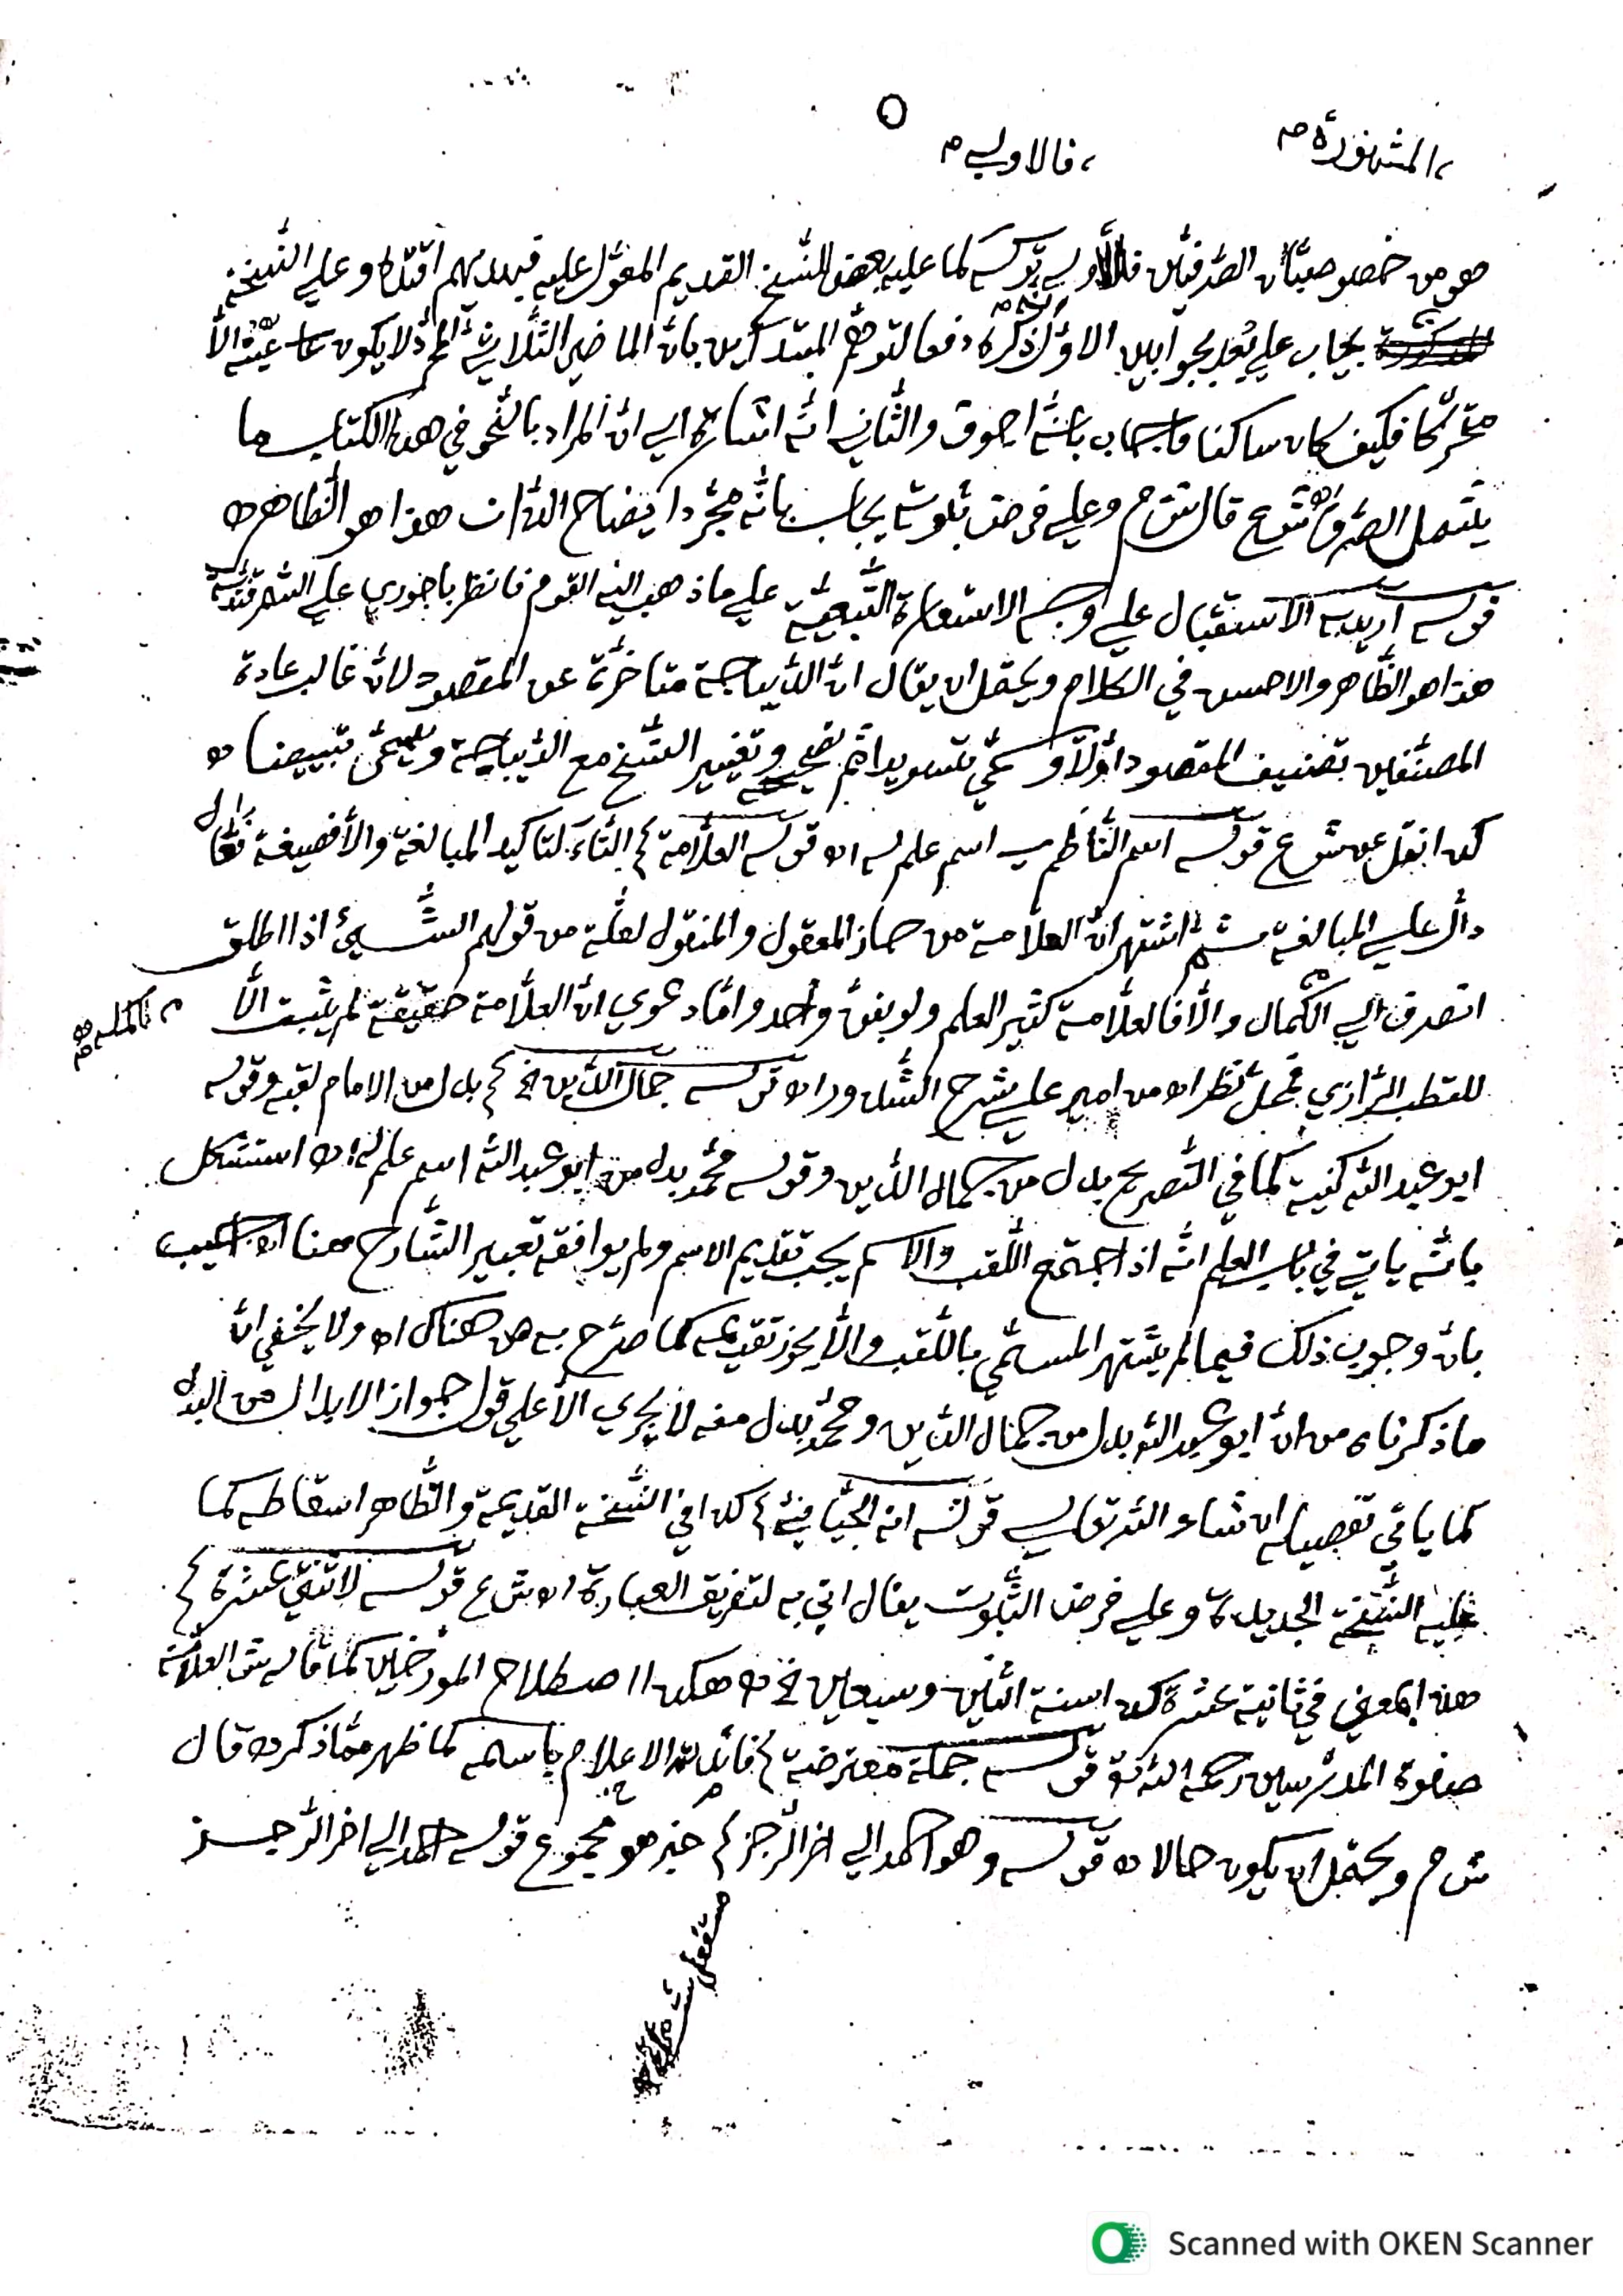 المشهورة م
فالاولى م
هو من خصوصيات الصرفيين فالاولى تركه كما عليه بعض النسخ القديم المعول عليه فبهديهم اقتده وعلى النسخة
يجاب على بعد بجوابين الاول انه ذكره دفعا لتوهم المبتدئين بان الماضي الثلاثي المجرد لا يكون عينه الا
متحركا فكيف كان ساكنا فاجاب بانه اجوف والثاني انه اشارة الى ان المراد بالنحو في هذا الكتاب ما
يشمل الصرف اه ش ع قال ش م وعلى فرض ثبوته يجاب بانه مجرد ايضاح الذات هذا هو الظاهر اه
قوله اريد به الاستقبال على وجه الاستعارة التبعية على ما ذهب اليه القوم فانظر باجوري على السمرقندية
هذا هو الظاهر والاحسن في الكلام ويحتمل ان يقال ان الديباجة متاخرة عن المقصود لان غالب عادة
المصنفين تصنيف المقصود اولا وسمي تسويدا ثم تصحيحه وتغيير النسخ مع الديباجة ويسمى تبييضا اه
كذا نقل عن ش ع قوله اسم الناظم اسم علم له اه قوله العلامة م التاء لتاكيد المبالغة والا فصيغة فعال
دال على المبالغة ثم اشتهر ان العلامة من حاز المعقول والمنقول لعله من قولهم الشيئ اذا اطلق
انصرف الى الكمال والا فالعلامة كثير العلم ولو بفن واحد واما دعوى ان العلامة حقيقة لم يثبت الا
للقطب الرازي فمحل نظر اه من امير على شرح الشذور اه قوله جمال الدين الخ م بدل من الامام لقبه وقوله
ابو عبد الله كنية كما في التصريح بدل من جمال الدين وقوله محمد بدل من ابو عبد الله اسم علم له اه استشكل
بانه ياتي في باب العلم انه اذا اجتمع اللقب والاسم يجب تقديم الاسم ولم يوافقه تعبير الشارح هنا اجيب
بان وجوب ذلك فيما لم يشتهر المسمى باللقب والا يجوز تقديمه كما صرح به ص هناك اه ولا يخفى ان
ما ذكرناه من ان ابو عبد الله بدل من جمال الدين ومحمد بدل منه لا يجري الا على قول جواز الابدال من البدل
كما ياتي تفصيله ان شاء الله تعالى قوله انه الجيانى م كذا في النسخة القديمة والظاهر اسقاطه كما
عليه النسخة الجديدة وعلى فرض الثبوت يقال اتي به لتفريق العبارة اه ش ع قوله لاثنتي عشرة م
هذا بمعنى في ثانية عشرة كذا سنة اثنين وسبعين الخ اه هكذا اصطلاح المورخين كما قاله ش العلامة
صفوة المدرسين رحمه الله تع قوله جملة معترضة م فائدته الاعلام باسمه كما ظهر مما ذكر اه قال
ش م ويحتمل ان يكون حالا اه قوله وهو احمد الى اخر الرجز م خبر هو مجموع قوله احمد الى اخر الرجز
Scanned with OKEN Scanner